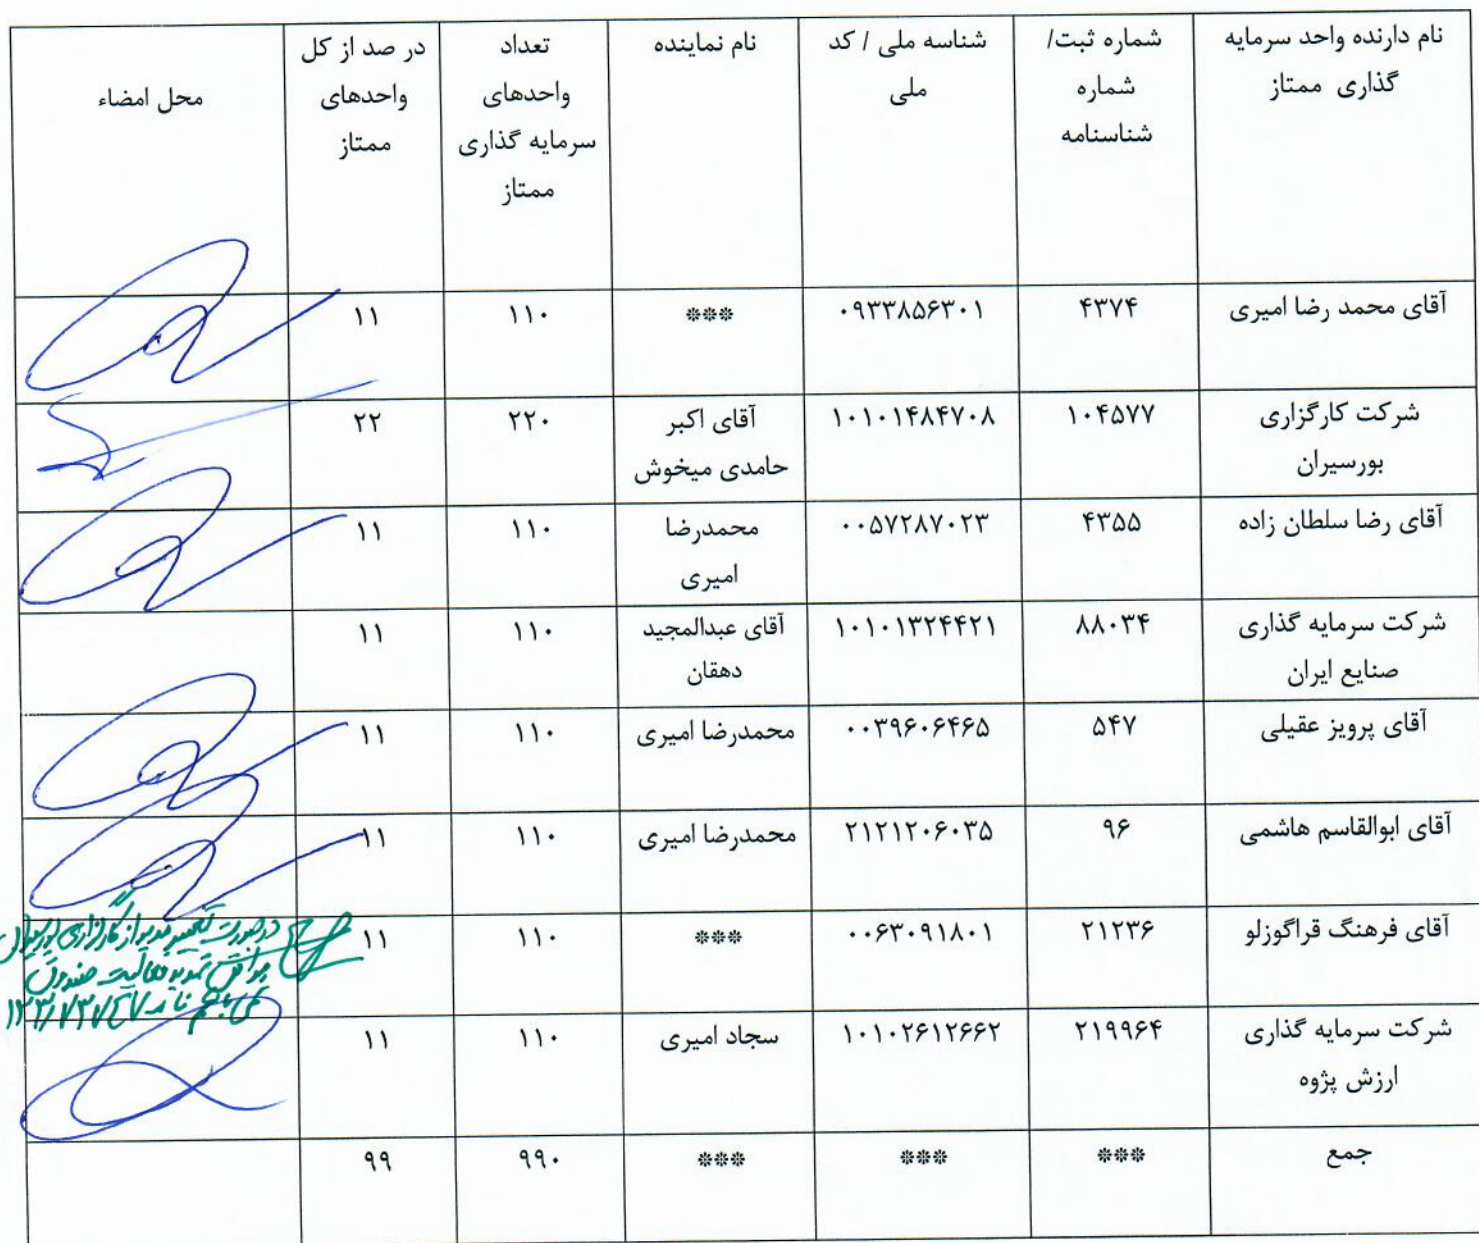 نام دارنده واحد سرمایه گذاری ممتاز | شماره ثبت/ شماره شناسنامه | شناسه ملی / کد ملی | نام نماینده | تعداد واحدهای سرمایه گذاری ممتاز | در صد از کل واحدهای ممتاز | محل امضاء
آقای محمد رضا امیری | ۴۳۷۴ | ۰۹۳۳۸۵۶۳۰۱ | *** | ۱۱۰ | ۱۱
شرکت کارگزاری بورسیران | ۱۰۴۵۷۷ | ۱۰۱۰۱۴۸۴۷۰۸ | آقای اکبر حامدی میخوش | ۲۲۰ | ۲۲
آقای رضا سلطان زاده | ۴۳۵۵ | ۰۰۵۷۲۸۷۰۲۳ | محمدرضا امیری | ۱۱۰ | ۱۱
شرکت سرمایه گذاری صنایع ایران | ۸۸۰۳۴ | ۱۰۱۰۱۳۲۴۴۲۱ | آقای عبدالمجید دهقان | ۱۱۰ | ۱۱
آقای پرویز عقیلی | ۵۴۷ | ۰۰۳۹۶۰۶۴۶۵ | محمدرضا امیری | ۱۱۰ | ۱۱
آقای ابوالقاسم هاشمی | ۹۶ | ۲۱۲۱۲۰۶۰۳۵ | محمدرضا امیری | ۱۱۰ | ۱۱
آقای فرهنگ قراگوزلو | ۲۱۲۳۶ | ۰۰۶۳۰۹۱۸۰۱ | *** | ۱۱۰ | ۱۱
در صورت تغییر مدیر از کارگزاری بورسیران
موافق تمدید فعالیت صندوق
می باشم
شرکت سرمایه گذاری ارزش پژوه | ۲۱۹۹۶۴ | ۱۰۱۰۲۶۱۲۶۶۲ | سجاد امیری | ۱۱۰ | ۱۱
جمع | *** | *** | *** | ۹۹۰ | ۹۹